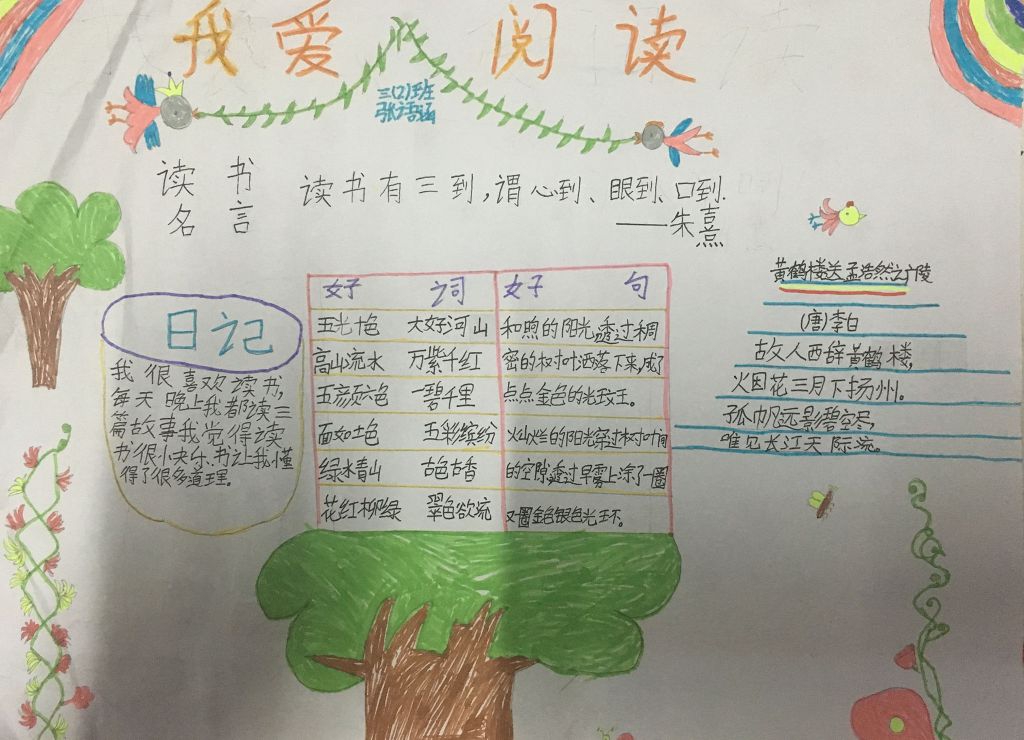 我爱阅读
三(2)班
张语涵
读书
名言
读书有三到,谓心到、眼到、口到.
——朱熹
日记
我很喜欢读书,
每天晚上我都读三
篇故事我觉得读
书很快乐.书让我懂
得了很多道理。
好词 好句
五光十色 大好河山
高山流水 万紫千红
五颜六色 一碧千里
面如土色 五彩缤纷
绿水青山 古色古香
花红柳绿 翠色欲流
和煦的阳光透过稠
密的树叶洒落下来,成了
点点金色的光
火灿烂的阳光穿过树叶间
的空隙透过早雾上涂了一圈
又圈金色银色光
黄鹤楼送孟浩然之广陵
(唐)李白
故人西辞黄鹤楼,
烟花三月下扬州。
孤帆远影碧空尽,
唯见长江天际流。